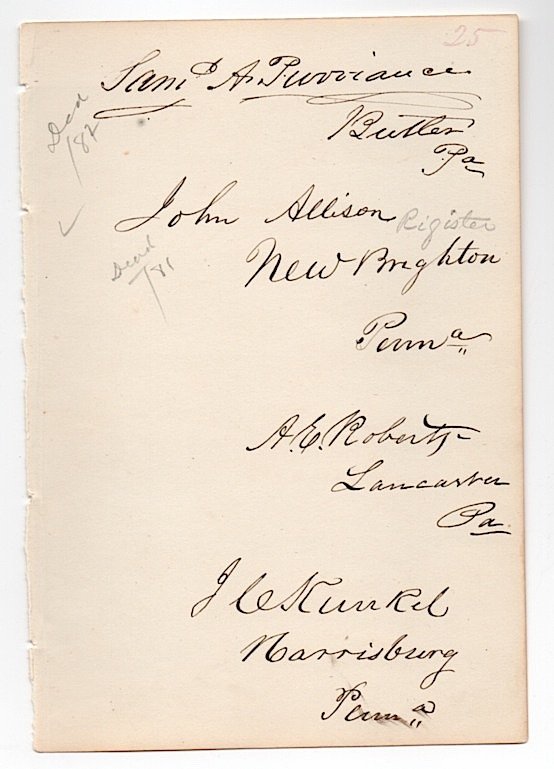 25
Saml A Purviance
Butler
Pa
Ded
/82
John Allison Rigister
New Brighton
Dead
/81
Penna
A. E. Roberts
Lancaster
Pa
J C Kunkel
Harrisburg
Penna